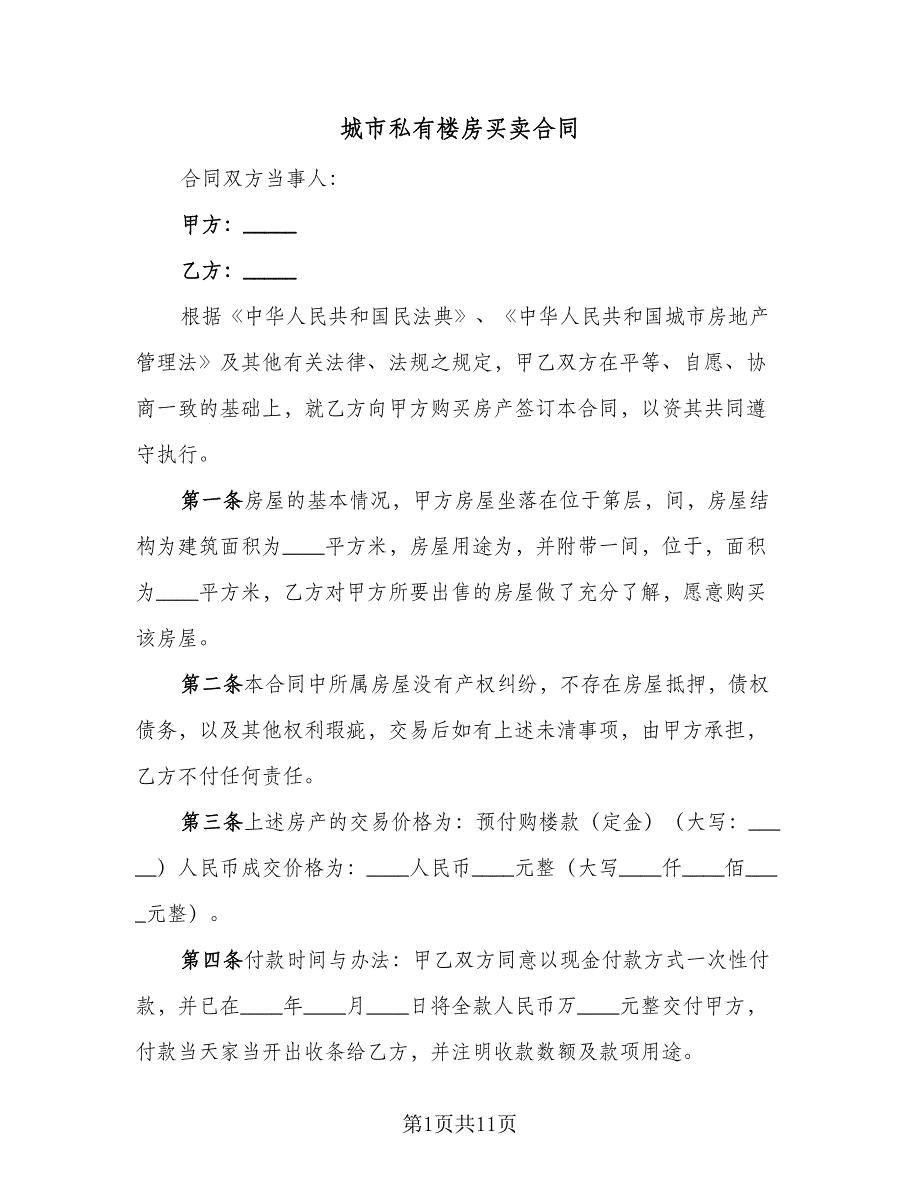 城市私有楼房买卖合同
合同双方当事人：
甲方：_____
乙方：_____
根据《中华人民共和国民法典》、《中华人民共和国城市房地产
管理法》及其他有关法律、法规之规定，甲乙双方在平等、自愿、协
商一致的基础上，就乙方向甲方购买房产签订本合同，以资其共同遵
守执行。
第一条房屋的基本情况，甲方房屋坐落在位于第层，间，房屋结
构为建筑面积为____平方米，房屋用途为，并附带一间，位于，面积
为____平方米，乙方对甲方所要出售的房屋做了充分了解，愿意购买
该房屋。
第二条本合同中所属房屋没有产权纠纷，不存在房屋抵押，债权
债务，以及其他权利瑕疵，交易后如有上述未清事项，由甲方承担，
乙方不付任何责任。
第三条上述房产的交易价格为：预付购楼款（定金）（大写：___
__）人民币成交价格为：____人民币____元整（大写____仟____佰___
_元整）。
第四条付款时间与办法：甲乙双方同意以现金付款方式一次性付
款，并已在____年____月____日将全款人民币万____元整交付甲方，
付款当天家当开出收条给乙方，并注明收款数额及款项用途。
第1页共11页